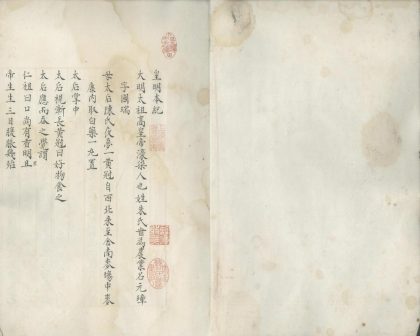 皇明本紀
大明太祖高皇帝濠梁人也姓朱氏世為農業名元璋
字國瑞
母太后陳氏夜夢一黃冠自西北來至舍南麥場中麥
康內取白藥一丸置
太后掌中
太后視漸長黃冠曰好物食之
太后應而吞之覺謂
仁祖曰口尚有香明旦
帝生生三日腹脹幾殆